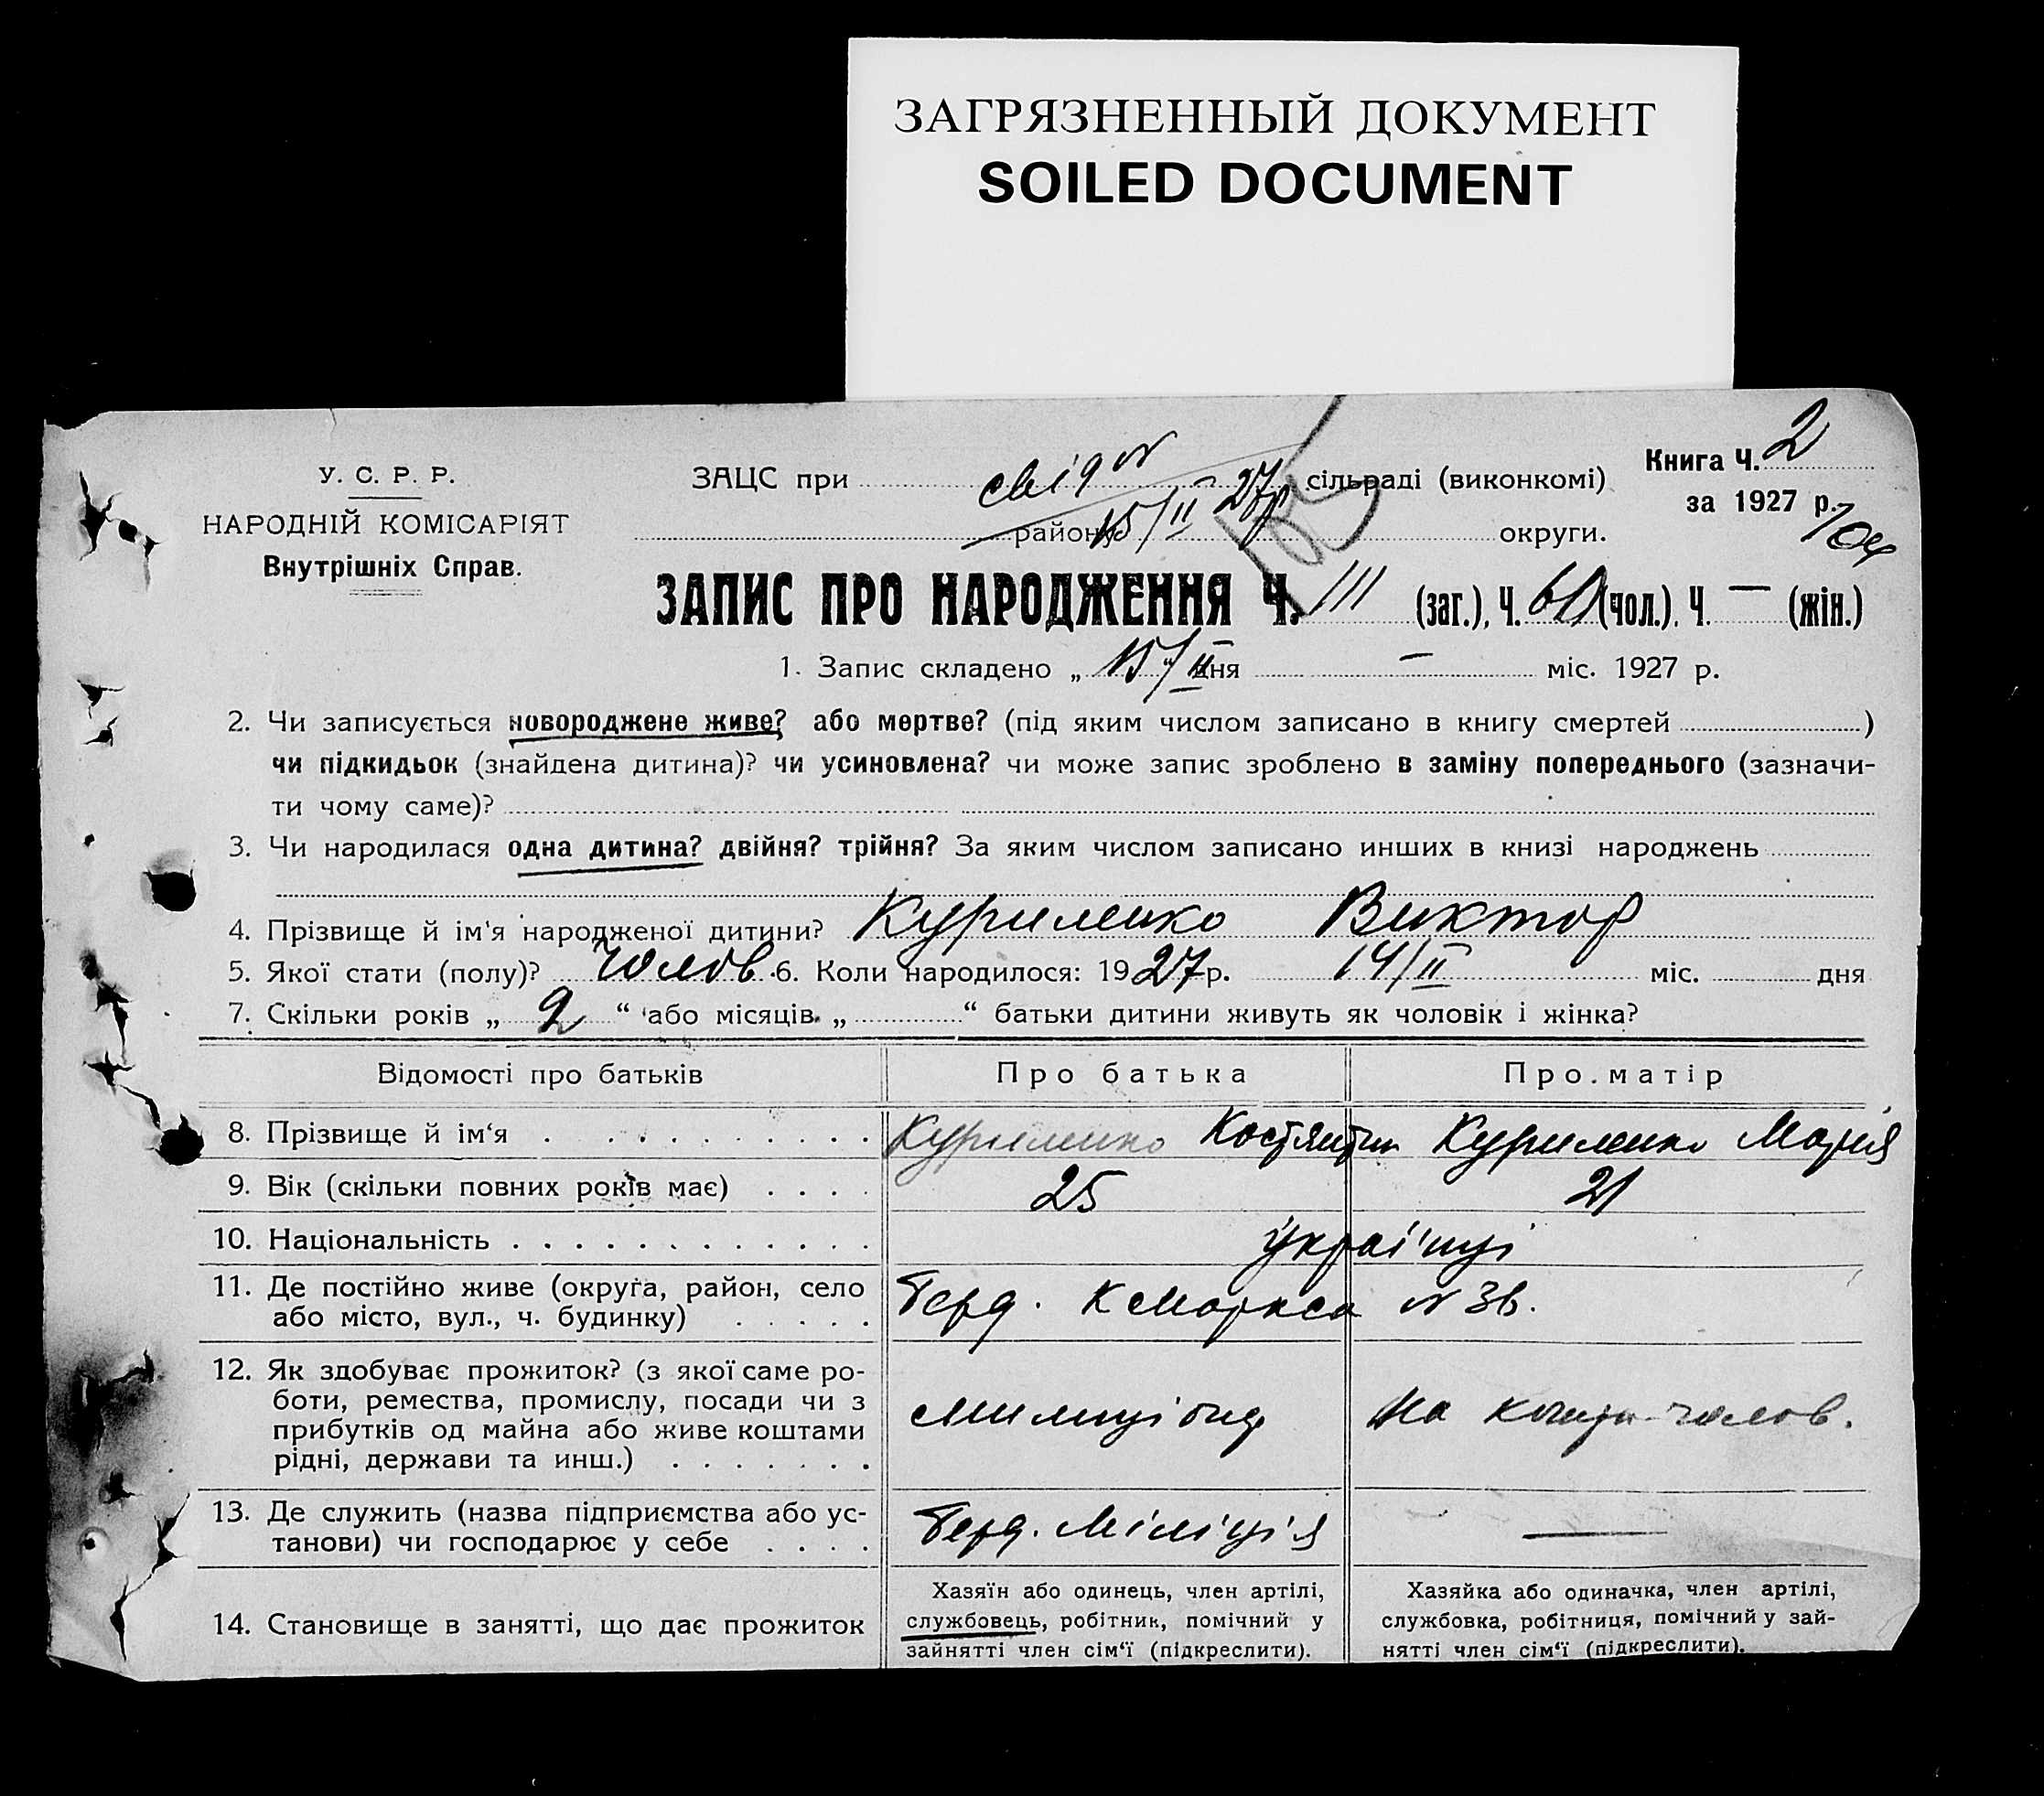 ЗАГРЯЗНЕННЫЙ ДОКУМЕНТ
SOILED DOCUMENT
У. С. Р. Р.
НАРОДНІЙ КОМІСАРІЯТ
Внутрішніх Справ.
ЗАЦС при свід № сільраді (виконкомі)
району 15/II 27р округи.
Книга Ч. 2
за 1927 р.
ЗАПИС ПРО НАРОДЖЕННЯ Ч. 111 (заг.), Ч. (чол.), Ч. — (жін.)
1. Запис складено „ 15/II “ дня — міс. 1927 р.
2. Чи записується новороджене живе? або мертве? (під яким числом записано в книгу смертей )
чи підкидьок (знайдена дитина)? чи усиновлена? чи може запис зроблено в заміну попереднього (зазначи-
ти чому саме)?
3. Чи народилася одна дитина? двійня? трійня? За яким числом записано инших в книзі народжень
4. Прізвище й ім'я народженої дитини? Куриленко Виктор
5. Якої стати (полу)? чолов. 6. Коли народилося: 1927 р. 14/II міс. дня
7. Скільки років „ 2 “ або місяців „ “ батьки дитини живуть як чоловік і жінка?
Відомості про батьків Про батька Про матір
8. Прізвище й ім‘я Куриленко Костянтин Куриленко Мария
9. Вік (скільки повних років має) 25 21
10. Національність українці
11. Де постійно живе (округа, район, село
або місто, вул., ч. будинку) Берд. К Маркса № 36.
12. Як здобуває прожиток? (з якої саме ро-
боти, ремества, промислу, посади чи з
прибутків од майна або живе коштами
рідні, держави та инш.) На кошти чолов.
13. Де служить (назва підприємства або ус-
танови) чи господарює у себе Берд. Міліція —
14. Становище в занятті, що дає прожиток
Хазяїн або одинець, член артілі,
службовець, робітник, помічний у
зайнятті член сім‘ї (підкреслити).
Хазяйка або одиначка, член артілі,
службовка, робітниця, помічний у зай-
нятті член сім‘ї (підкреслити).